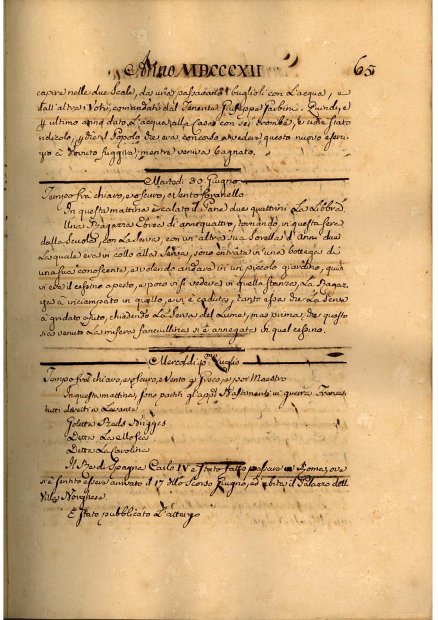 Anno MDCCCXII
65
capire nelle due Scale, da una passavano i buglioli con L'acqua, e
dall'altra i Voti, comandati dal Tenente Giuseppe Quindi, e
ultimo anno dato L'acqua alla Casa con sei Trombe, e
il Popolo che era concorso a vedere questo nuovo
è dovuto fuggire, mentre veniva bagnato.
Martedì 30 Giugno
Tempo frà chiaro, e oscuro, e Vento
In questa mattina è calato il Pane due quattrini La Libbra.
Una Ragazza Ebrea di anni quattro, tornando in questa sera
dalla Scuola, con La Serva, con un'altra sua Sorella d'anni due
La quale era in collo alla Serva, sono entrate in una bottega di
una sua conoscente, e volendo andare in un piccolo giardino, quivi
vi era il aperto, e poco vi si vedeva in quella stanza, La Ragaz-
za è inciampata in quello, e vi è caduta, tanto essa che La Serva
à gridato ajuto, chiedendo La Serva del Lume, ma prima che questo
sia venuto La misera fanciullina si è annegata in quel
Mercoldì p.mo Luglio
Tempo frà chiaro, e oscuro, e Vento p. Greco, e poi Maestro
In questa mattina, sono partiti gli app.i Bastimenti in guerra Francesi
tutti diretti a Levante
Goletta
Detta
Detta La Carolina
Il Re di Spagna Carlo IV è stato fatto passare a Roma, ove
si è sentito essere arrivato il 17 dello scorso Giugno, ed abita il Palazzo della
Villa Borghese.
È stato pubblicato L'